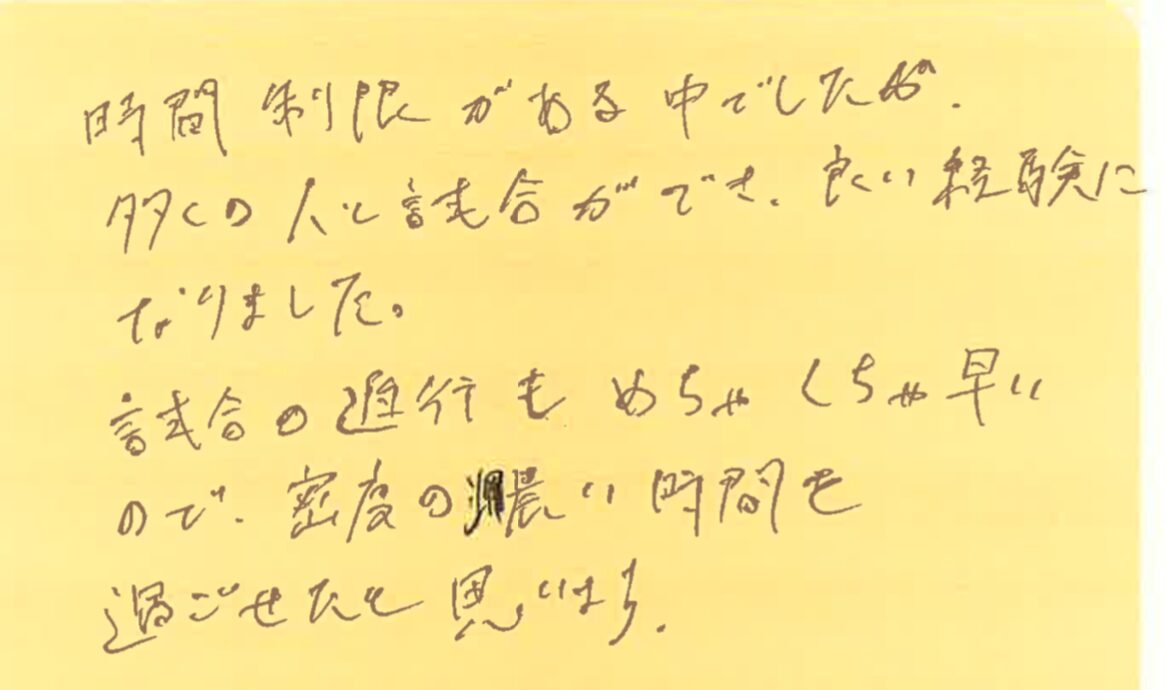 時間制限がある中でしたが、
多くの人と試合ができ、良い経験に
なりました。
試合の進行もめちゃくちゃ早い
ので、密度の濃い時間を
過ごせたと思います。